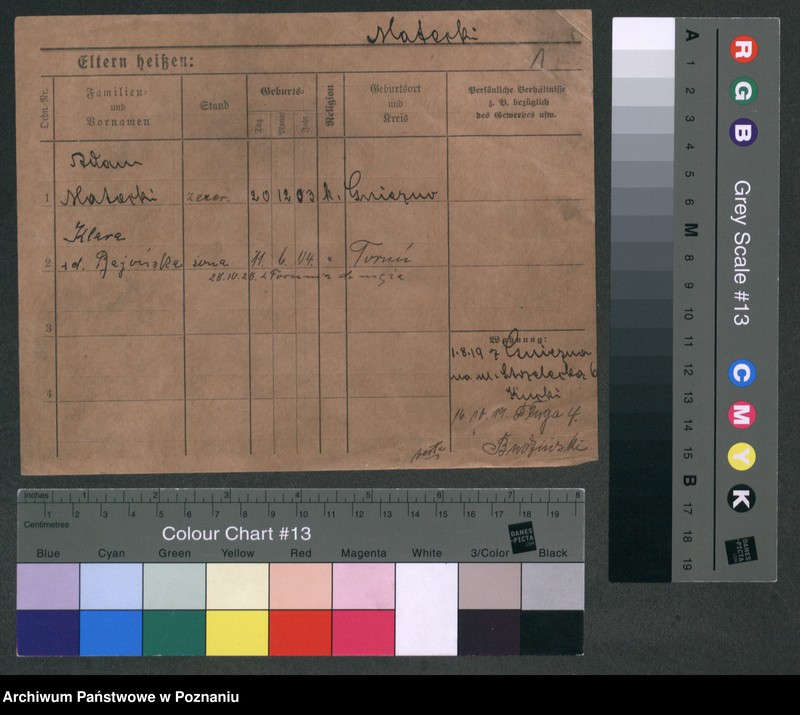 Matecki
1
Eltern heißen:
Ordn.-Nr.
Familien- und Vornamen
Stand
Geburts-
Tag
Monat
Jahr
Religion
Geburtsort und Kreis
Persönliche Verhältnisse z. B. bezüglich des Gewerbes usw.
Adam
1 Matecki zecer. 20 12 03 k. Gniezno
Klara
2 Bajońska żona 11 6 04. " Toruń
28.10.28. z Torunia do męża
3
Wohnung:
1.8.19 z Gniezna
na ul. Strzelecka 6
4
16. 10. 19. Długa 4.
Budziński
Inches 1 2 3 4 5 6 7 8
Centimetres 1 2 3 4 5 6 7 8 9 10 11 12 13 14 15 16 17 18 19
Colour Chart #13
DANES-PICTA
Blue Cyan Green Yellow Red Magenta White 3/Color Black
A 1 2 3 4 5 6 M 8 9 10 11 12 13 14 15 B 17 18 19
R G B
Grey Scale #13
C M Y K
DANES-PICTA
Archiwum Państwowe w Poznaniu